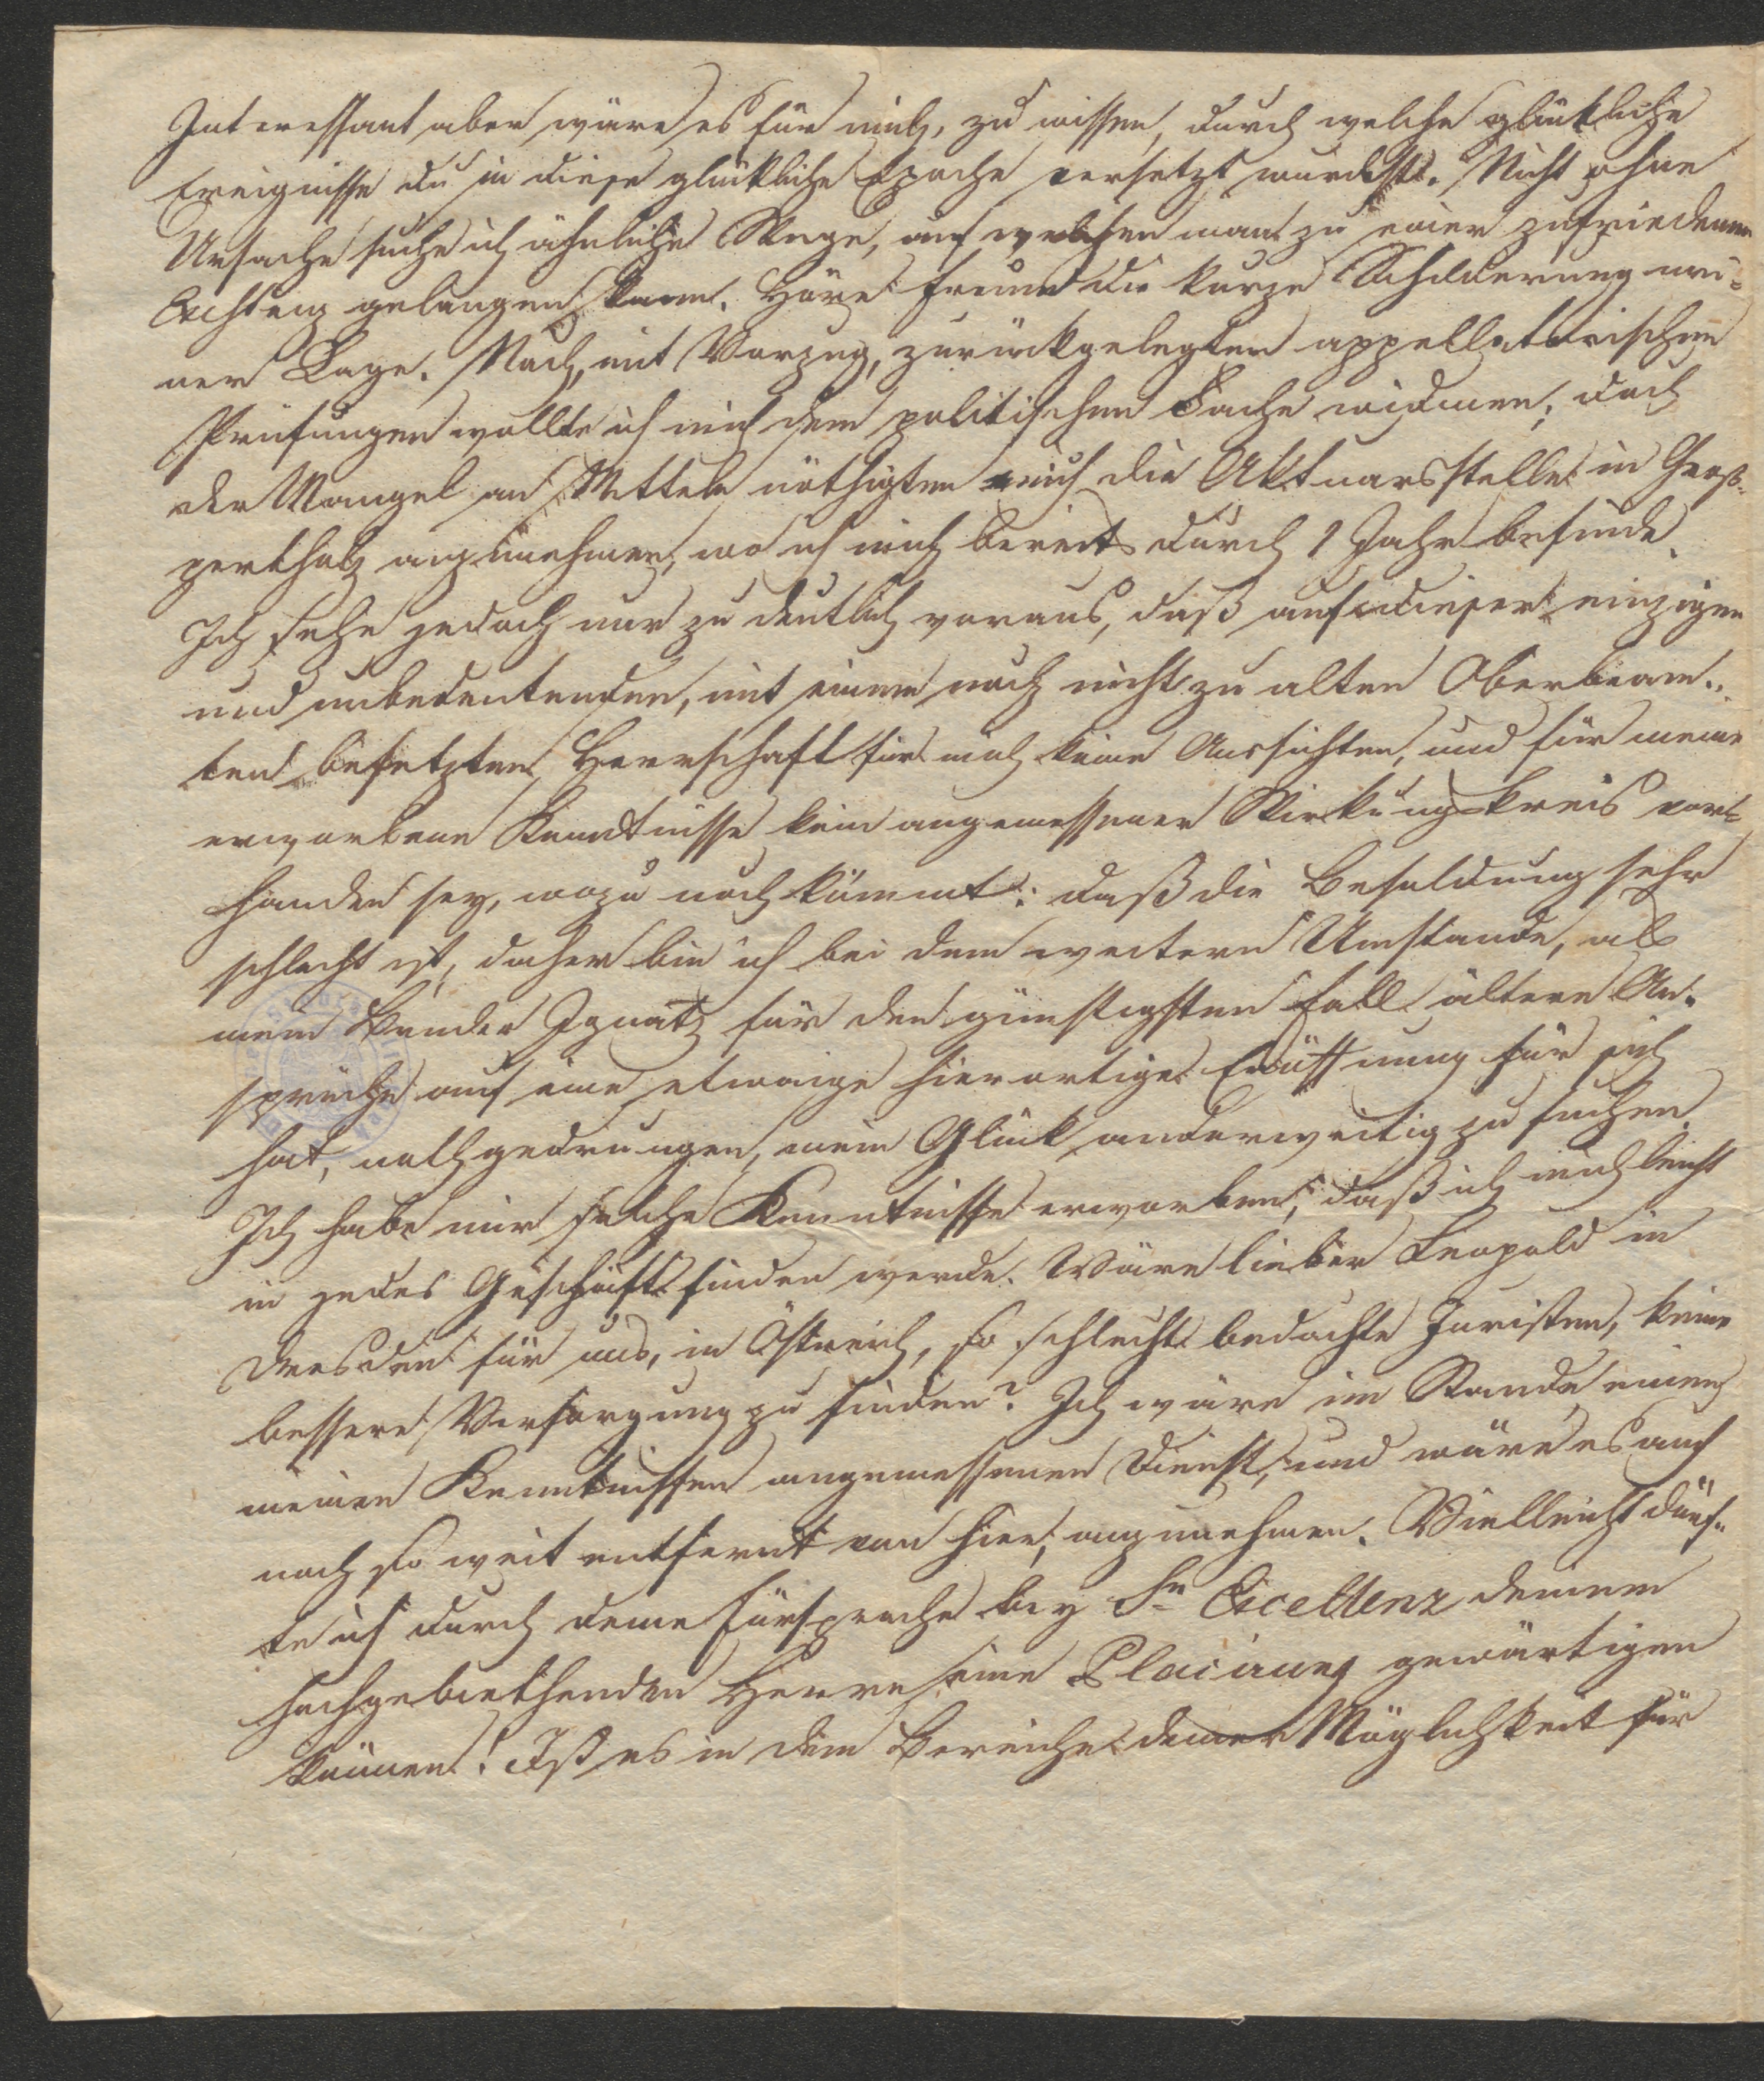 Interessant aber wäre es für mich, zu wissen, durch welche glückliche
Ereignisse du in diese glückliche Epoche versetzt wurdest. Nicht ohne
Ursache suche ich ähnliche Wege, auf welchen man zu einer zufriedenen
gelangen kann. Höre Freund die kurze Schilderung mei-
ner Lage. Nach, mit Vorzug, zurückgelegten appellatorischen
Prüfungen wollte ich mich dem politischen Fache widmen; doch
der Mangel an Mitteln nöthigten mich die Aktuarsstelle in Groß-
pertholz anzunehmen, wo ich mich bereits durch 1 Jahr befinde.
Ich sehe jedoch nur zu deutlich voraus, daß auf dieser einzigen
und unbedeutenden, mit einem noch nicht zu alten Oberbeam-
ten besetzten Herrschaft für mich keine Aussichten, und für meine
erworbene Kenntnisse kein angemessener Wirkungskreis vor-
handen sey, wozu noch kömmt: daß die Besoldung sehr
schlecht ist, daher bin ich bei dem weitern Umstande, als
mein Bruder Ignatz für den günstigsten Fall ältere An-
sprüche auf eine etwaige hierortige Eröffnung für sich
hat, nothgedrungen, mein Glück anderweitig zu suchen.
Ich habe mir solche Kenntnisse erworben, daß ich mich leicht
in jedes Geschäft finden werde. Wäre lieber Leopold in
Dresden für uns, in Östreich, so schlecht bedachte Juristen, keine
bessere Versorgung zu finden? Ich wäre im Stande einen
meinen Kenntnissen angemessenen Dienst, und wäre es auch
noch so weit entfernt von hier, anzunehmen. Vielleicht dürf-
te ich durch deine Fürsprache bey Sr Excellenz deinem
hochgebiethenden Herrn eine Placirung gewärtigen
können! Ist es in dem Bereiche deiner Möglichkeit für